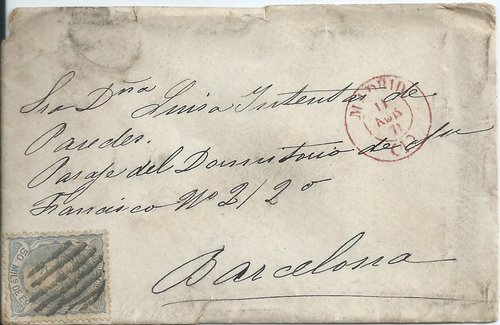 Sra Dña Luisa Intentas de
Paredes.
Pasaje del Dormitorio de Sn
Francisco Nº 2/2º
Barcelona
MADRID
11
ABR
71
50 MILS DE E